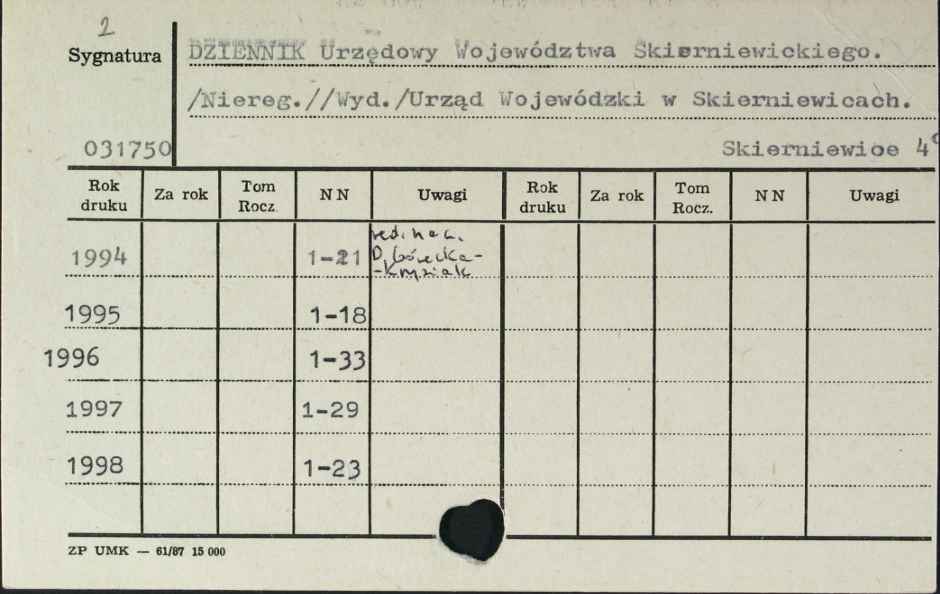 2
Sygnatura
DZIENNIK Urzędowy Województwa Skierniewickiego.
/Niereg.//Wyd./Urząd Wojewódzki w Skierniewicach.
031750 Skierniewice 4°
Rok druku Za rok Tom Rocz. NN Uwagi Rok druku Za rok Tom Rocz. NN Uwagi
red. nac.
1994 1-21 D. Górecka-
-Krysiak
1995 1-18
1996 1-33
1997 1-29
1998 1-23
ZP UMK — 61/87 15 000